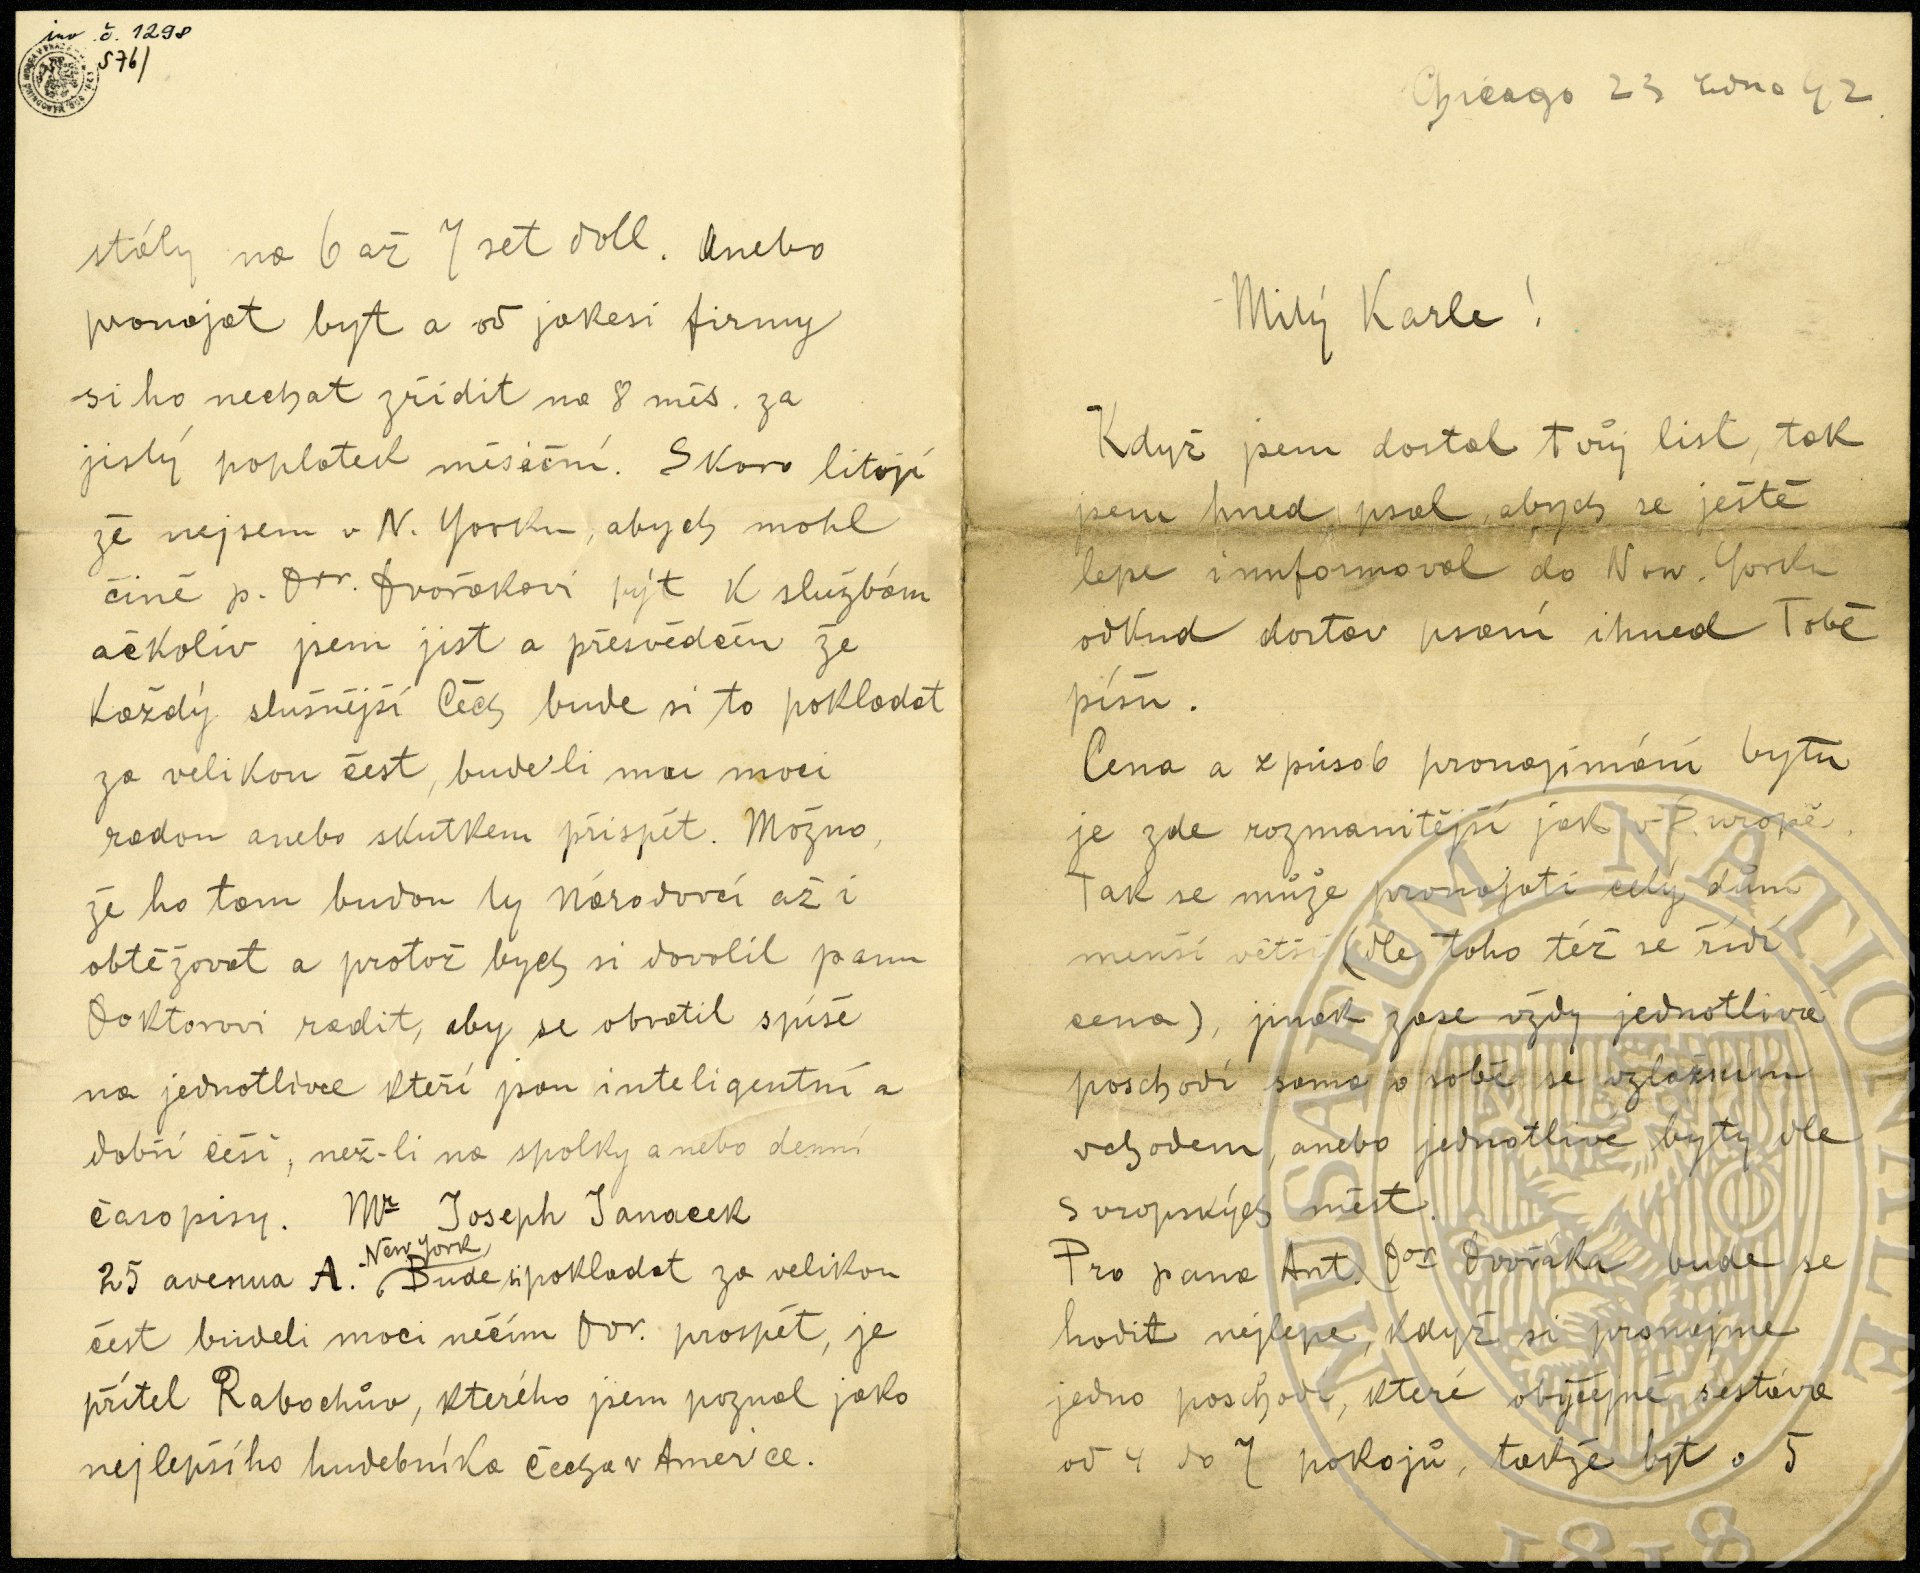 Chicago 23 ledna 92
Milý Karle!
Když jsem dostal tvůj list, tak
jsem hned psal, abych se ještě
lépe innformoval do New. Yorku
odkud dostav psaní ihned Tobě
píšu.
Cena a způsob pronajímání bytu
je zde rozmanitější jak v Europě.
Tak se může pronajati celý dům
menší větší (dle toho též se řídí
cena), jinák zase vždy jednotlivé
poschodí samo o sobě se vzláštním
vchodem, anebo jednotlivé byty dle
měst.
Pro pana Ant. Dor Dvořáka bude se
hodit nejlépe, když si pronajme
jedno poschodí, které obyčejně sestává
od 4 do 7 pokojů, takže byt o 5
inv. č. 1298
S76/
stály na 6 až 7 set doll. Anebo
pronajat byt a od jakési firmy
si ho nechat zřídit na 8 měs. za
jistý poplatek měsíční. Skoro lituji
že nejsem v N. Yorku, abych mohl
čině p. Dor. Dvořákovi být k službám
ačkoliv jsem jist a přesvědčen že
každý slušnější Čech bude si to pokládat
za velikou čest, bude'li mu moci
radou anebo skutkem přispět. Možno,
že ho tam budou ty Národovci až i
obtěžovat a protož bych si dovolil panu
Doktorovi radit, aby se obrátil spíše
na jednotlivce kteří jsou inteligentní a
dobří češi, než-li na spolky anebo denní
časopisy. Mr Joseph Janacek
25 avenua A. New York Bude si pokládat za velikou
čest budeli moci něčím Dor. prospět, je
přítel Rabochův, kterého jsem poznal jako
nejlepšího hudebníka Čecha v Americe.
MUSAEUM NATIONALE
1818